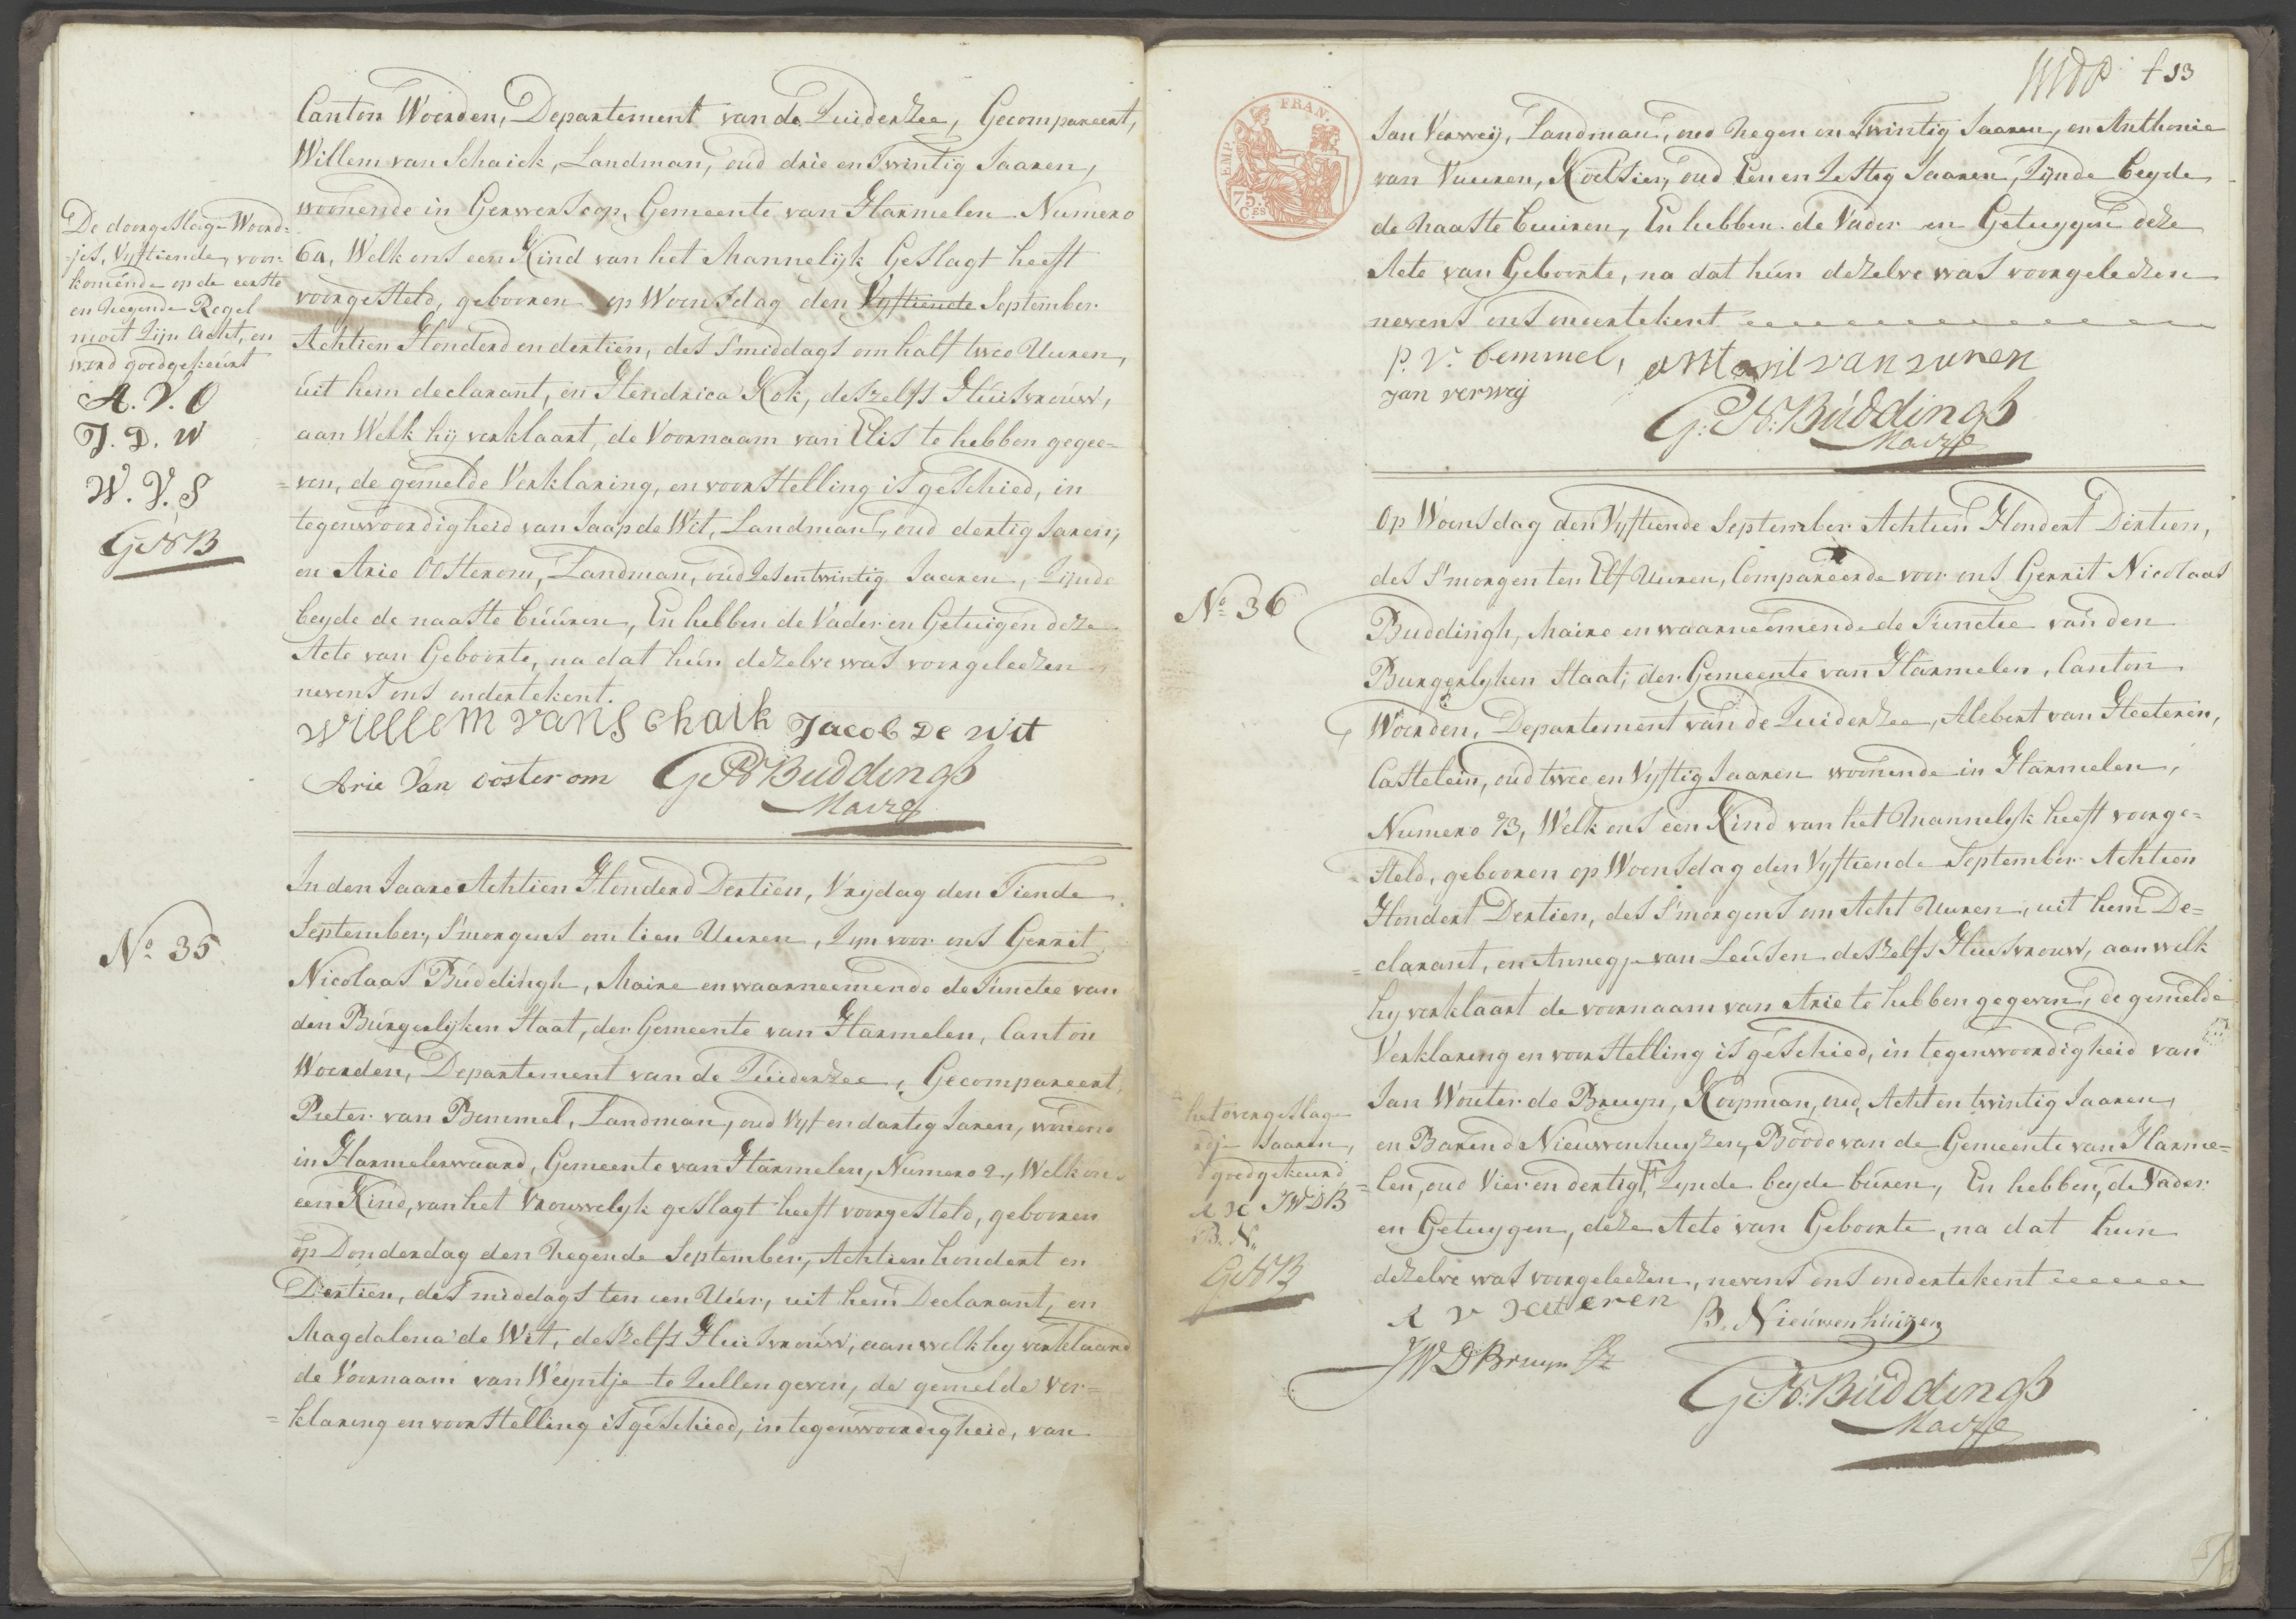 Canton Woerden, Departement van de Zuiderzee, Gecompareert,
Willem van Schaick, Landman, oud drie en Twintig Jaaren,
woonende in Gerverscop, Gemeente van Harmelen Numero
6a, Welk ons een Kind van het Mannelijk Geslagt heeft
voorgesteld, gebooren op Woensdag den Vyftiende September
Achtien Honderd en dertien, des S'middags om half twee Uuren,
uit hem declarant, en Hendrica Kok, deszelfs Huisvrouw,
aan Welk hij verklaart, de Voornaam van Elis te hebben gegee=
=ven, de gemelde Verklaring, en voorstelling is geschied, in
tegenwoordigheid van Jaap de Wit, Landman, oud dertig Jaren,
en Arie Oosterom, Landman, oud Zesentwintig Jaaren, Zijnde
beyde de naaste buuren, En hebben de Vader en Getuigen deze
Acte van Geboorte, na dat hun dezelve was voorgeleezen
nevens ons ondertekent.
willem van Schaik Jacob de wit
Arie Van oosterom GNBuddingh
Maire
De doorgeslage Woord=
=jes, Vyftiende, voor=
komende op de eerste
en negende Regel
moet Zijn Acht, en
word goedgekeurt
A. V. O
J. D. W
W. V. S
GNB
No. 35
In den Jaare Achtien Honderd Dertien, Vrijdag den Tiende
September, S'morgens om tien Uuren, Zijn voor ons Gerrit
Nicolaas Buddingh, Maire en waarneemende de Functie van
den Burgerlijken Staat, der Gemeente van Harmelen, Canton
Woerden, Departement van de Zuiderzee, Gecompareert,
Pieter van Bemmel, Landman, oud Vyf en dartig Jaren, wonend
in Harmelerwaard, Gemeente van Harmelen, Numero 2, Welk ons
een Kind, van het Vrouwelyk geslagt heeft voorgesteld, gebooren
op Donderdag den Negende September, Achtien hondert en
Dertien, des middags ten een Uur, uit hem Declarant, en
Magdalena de Wit, deszelfs Huisvrouw, aan welk hy verklaard
de Voornaam van Weyntje te Zullen geven, de gemelde Ver=
=klaring en voorstelling is geschied, in tegenwoordigheid, van
f 13
EMP. FRAN.
75 Ces
Jan Verweij, Landman, oud Negen en Twintig Jaaren, en Anthonie
van Vuuren, Koetsier, oud Een en Zestig Jaaren, Zijnde beyde
de naaste buuren, En hebben de Vader en Getuygen deze
Acte van Geboorte, na dat hun dezelve was voorgeleezen
nevens ons onertekent
p. v. bemmel, antonie van vuren
jan verweij
G:N:Buddingh
Maire
No. 36
Op Woensdag den Vyftiende September Achtien Hondert Dertien,
des S'morgen ten Elf Uuren, Compareerde voor ons Gerrit Nicolaas
Buddingh, Maire en waarneemende de Functie van den
Burgerlyken Staat, der Gemeente van Harmelen, Canton
Woerden, Departement van de Zuiderzee, Alebert van Heeteren,
Castelein, oud twee en Vyftig Jaaren woonende in Harmelen,
Numero 73, Welk ons een Kind van het Mannelyk heeft voorge=
steld, gebooren op Woensdag den Vyftiende September Achtien
Hondert Dertien, des S'morgens om Acht Uuren, uit hem De=
=clarant, en Annegje van Leusen deszelfs Huisvrouw, aan welk
hy verklaart de voornaam van Arie te hebben gegeven, de gemelde
Verklaring en voorstelling is geschied, in tegenwoordigheid van
Jan Wouter de Bruyn, Koopman, oud, Acht en twintig Jaaren,
en Barend Nieuwenhuyzen, Boode van de Gemeente van Harme=
=len, oud Vier en dertig, Zynde beyde buren, En hebben, de Vader
en Getuygen, deze Acte van Geboorte, na dat hun
dezelve was voorgeleezen, nevens ons ondertekent
A v Heeteren B. Nieuwenhuizen
JWDBruyn
G:N:Buddingh
Maire
het overgeslage
Jaaren,
goedgekeurd
A H JWDB
B. N.
GNB